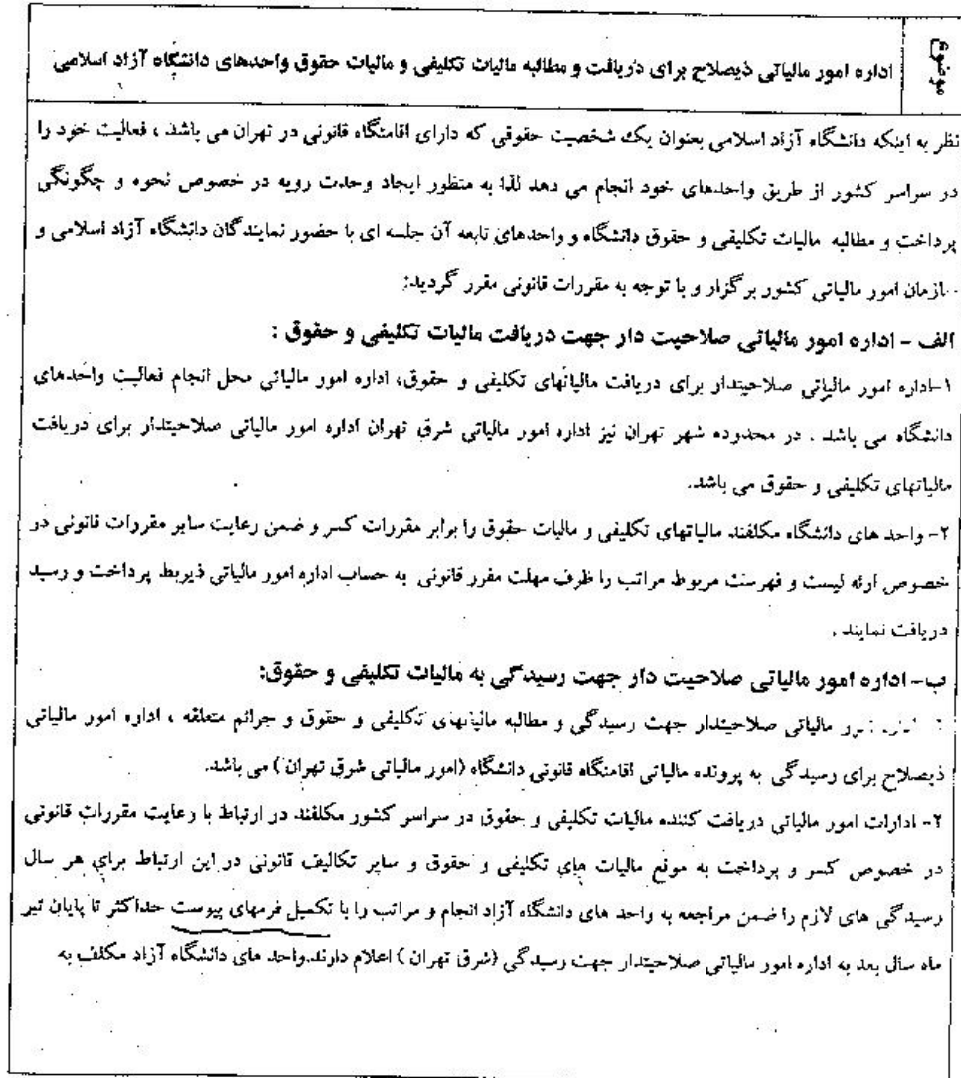 موضوع
اداره امور مالیاتی ذیصلاح برای دریافت و مطالبه مالیات تکلیفی و مالیات حقوق واحدهای دانشگاه آزاد اسلامی
نظر به اینکه دانشگاه آزاد اسلامی بعنوان یک شخصیت حقوقی که دارای اقامتگاه قانونی در تهران می باشد ، فعالیت خود را
در سراسر کشور از طریق واحدهای خود انجام می دهد لذا به منظور ایجاد وحدت رویه در خصوص نحوه و چگونگی
پرداخت و مطالبه مالیات تکلیفی و حقوق دانشگاه و واحدهای تابعه آن جلسه ای با حضور نمایندگان دانشگاه آزاد اسلامی و
سازمان امور مالیاتی کشور برگزار و با توجه به مقررات قانونی مقرر گردید:
الف - اداره امور مالیاتی صلاحیت دار جهت دریافت مالیات تکلیفی و حقوق :
۱-اداره امور مالیاتی صلاحیتدار برای دریافت مالیاتهای تکلیفی و حقوق، اداره امور مالیاتی محل انجام فعالیت واحدهای
دانشگاه می باشد . در محدوده شهر تهران نیز اداره امور مالیاتی شرق تهران اداره امور مالیاتی صلاحیتدار برای دریافت
مالیاتهای تکلیفی و حقوق می باشد.
۲- واحد های دانشگاه مکلفند مالیاتهای تکلیفی و مالیات حقوق را برابر مقررات کسر و ضمن رعایت سایر مقررات قانونی در
خصوص ارئه لیست و فهرست مربوط مراتب را ظرف مهلت مقرر قانونی به حساب اداره امور مالیاتی ذیربط پرداخت و رسید
دریافت نمایند .
ب- اداره امور مالیاتی صلاحیت دار جهت رسیدگی به مالیات تکلیفی و حقوق:
مالیاتی صلاحیتدار جهت رسیدگی و مطالبه مالیاتهای تکلیفی و حقوق و جرائم متعلقه ، اداره امور مالیاتی
ذیصلاح برای رسیدگی به پرونده مالیاتی اقامتگاه قانونی دانشگاه (امور مالیاتی شرق تهران ) می باشد.
۲- ادارات امور مالیاتی دریافت کننده مالیات تکلیفی و حقوق در سراسر کشور مکلفند در ارتباط با رعایت مقررات قانونی
در خصوص کسر و پرداخت به موقع مالیات های تکلیفی و حقوق و سایر تکالیف قانونی در این ارتباط برای هر سال
رسیدگی های لازم را ضمن مراجعه به واحد های دانشگاه آزاد انجام و مراتب را با تکمیل فرمهای پیوست حداکثر تا پایان تیر
ماه سال بعد به اداره امور مالیاتی صلاحیتدار جهت رسیدگی (شرق تهران ) اعلام دارند.واحد های دانشگاه آزاد مکلف به